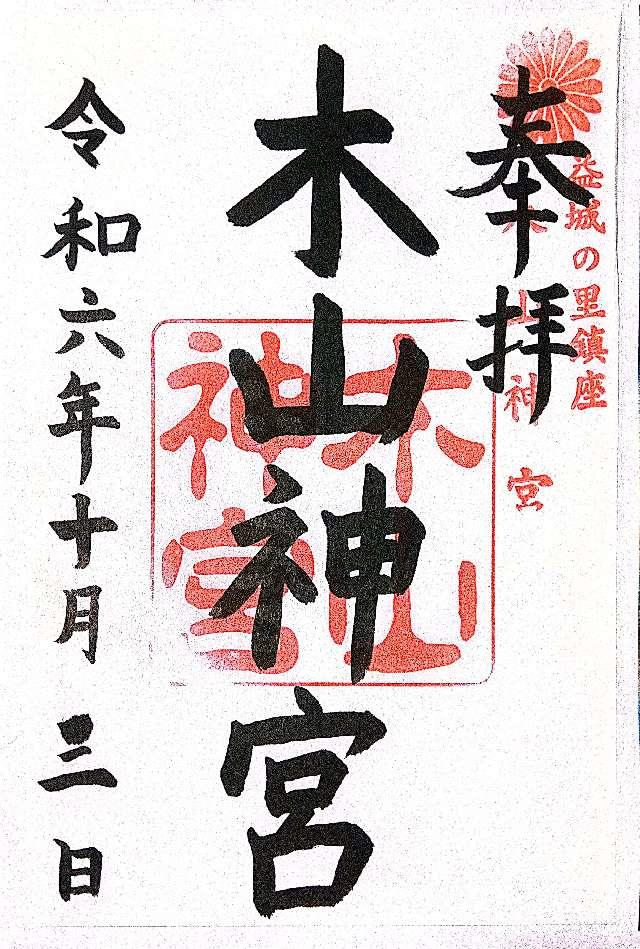 益城の里鎮座
木山神宮
奉拝
木山神宮
木山神宮
令和六年十月三日